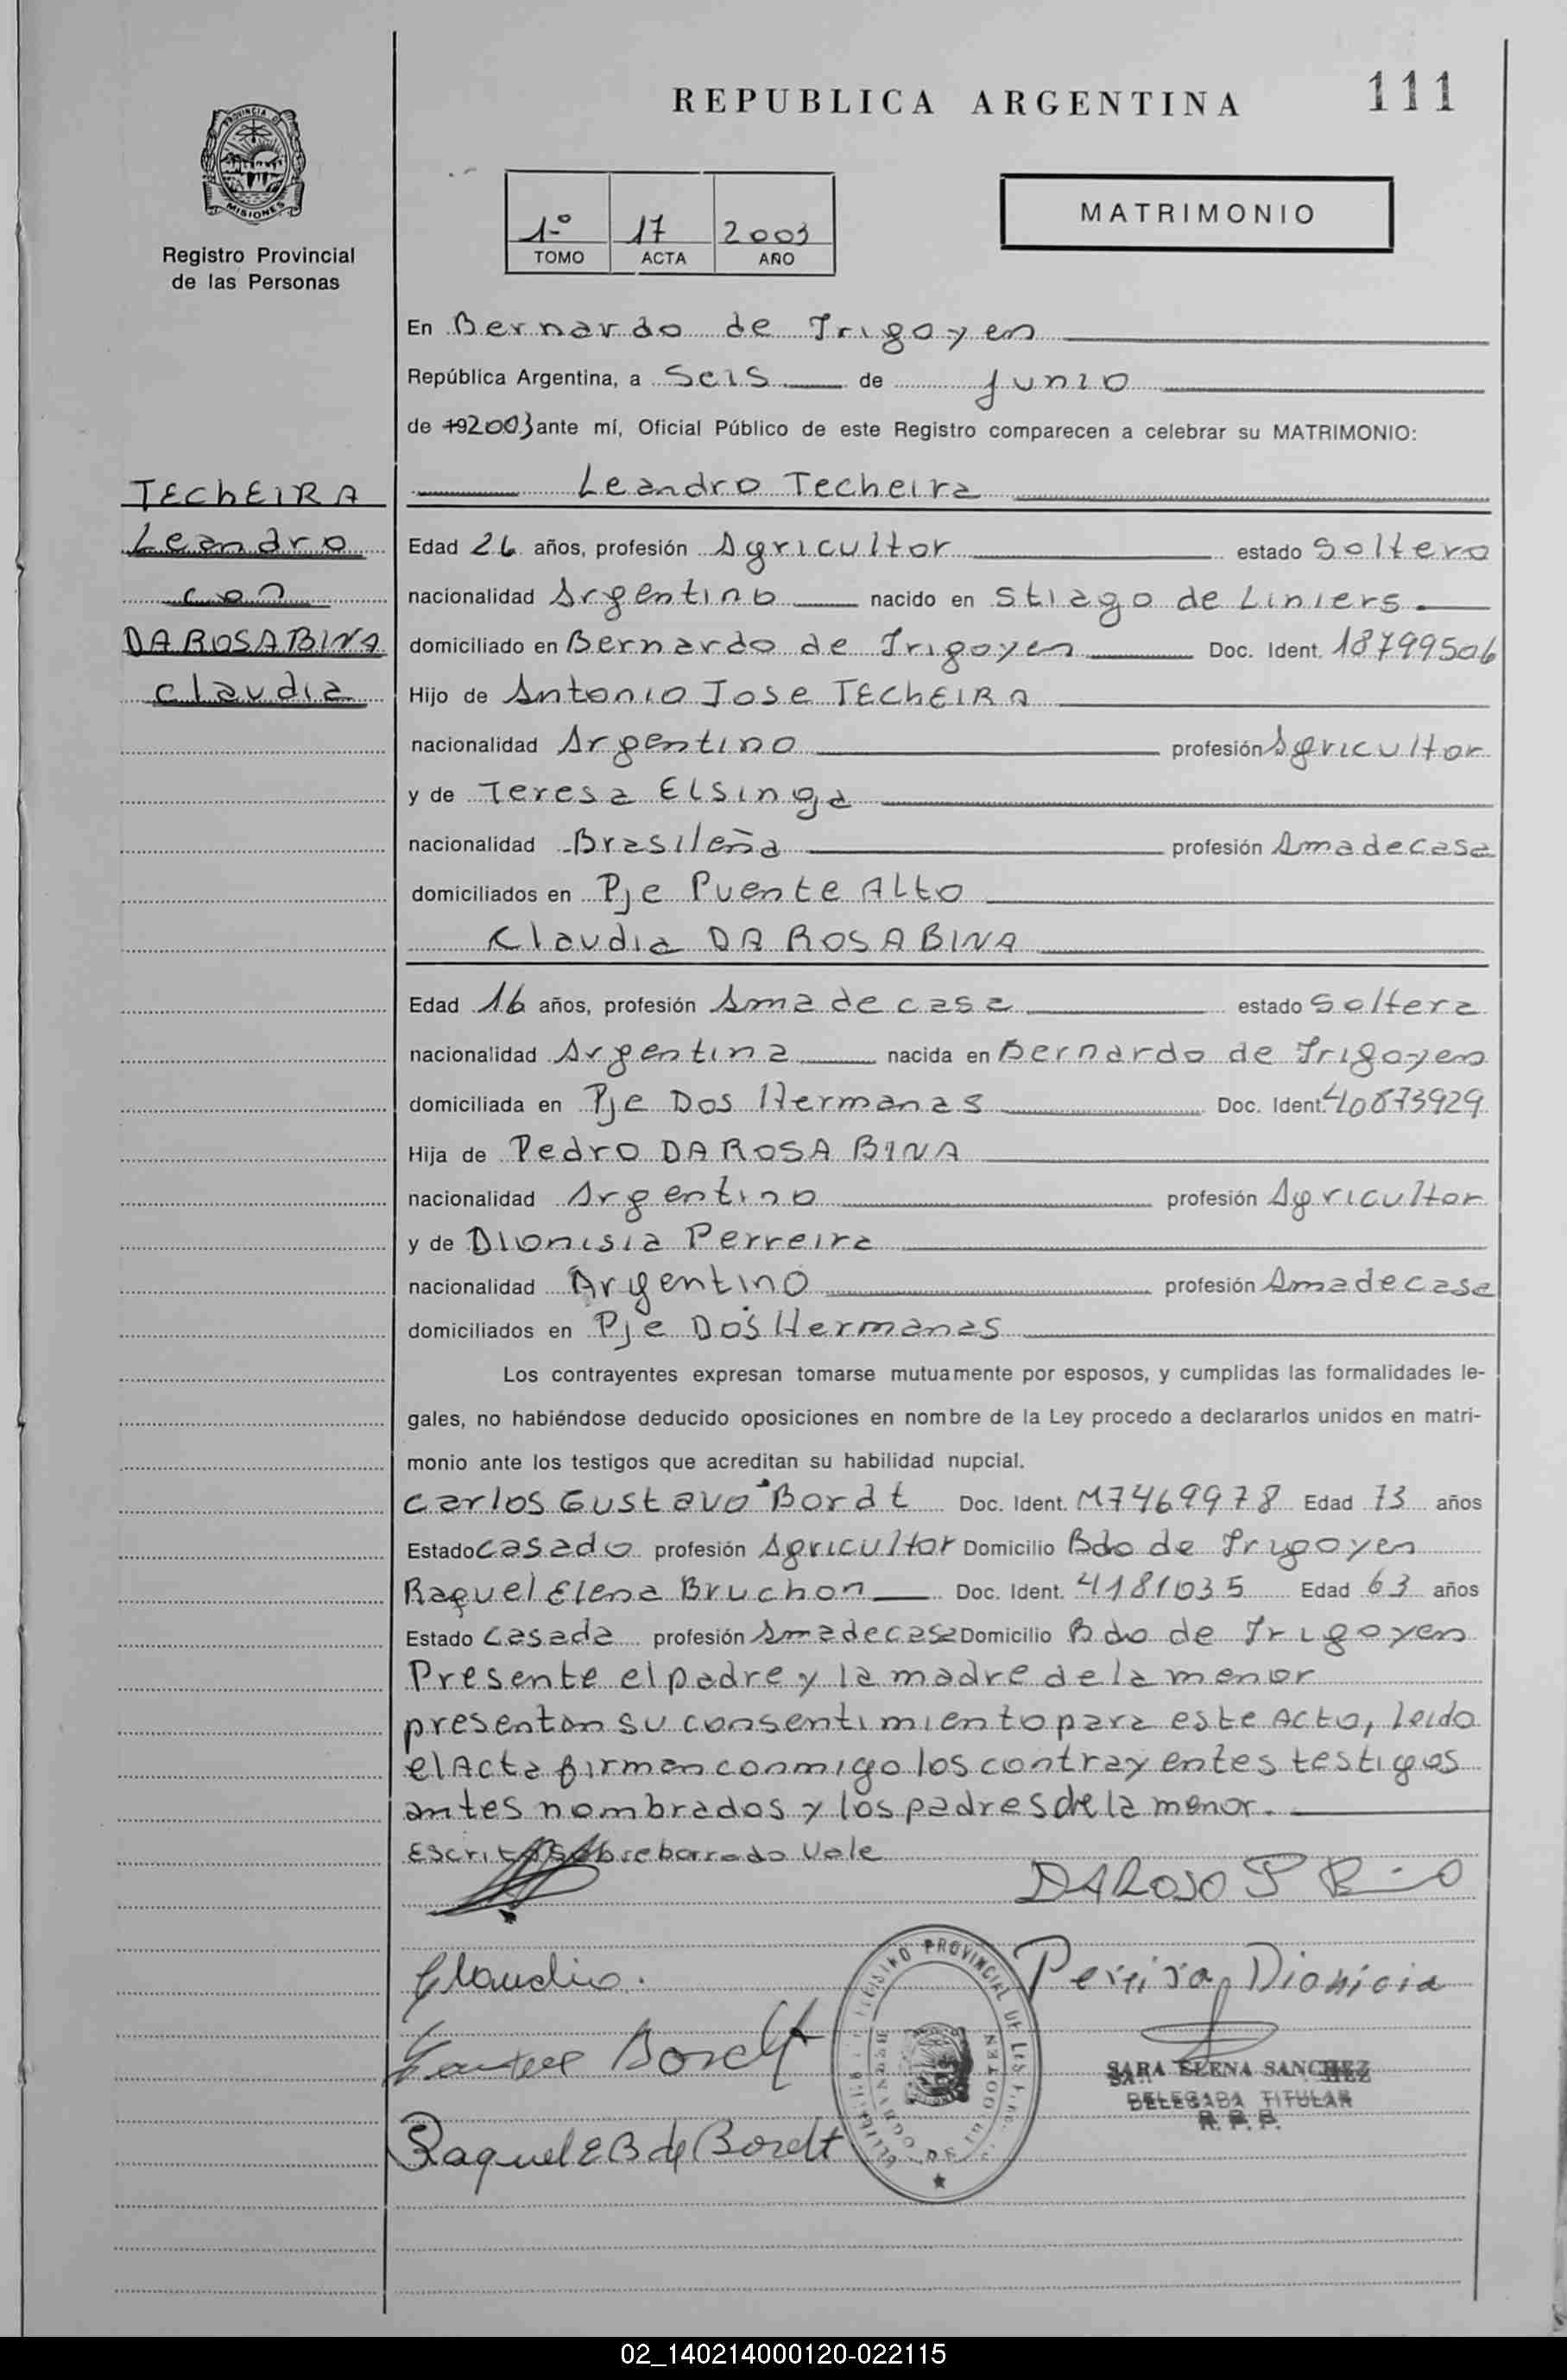 REPUBLICA ARGENTINA
111
PROVINCIA DE
MISIONES
Registro Provincial
de las Personas
1º 17 2003
TOMO ACTA AÑO
MATRIMONIO
En Bernardo de Irigoyen
República Argentina, a Seis de junio
de 192003 ante mí, Oficial Público de este Registro comparecen a celebrar su MATRIMONIO:
TEChEIRA
Leandro
con
DA ROSA BINA
claudia
Leandro Techeira
Edad 26 años, profesión Agricultor estado Soltero
nacionalidad Argentino nacido en Stiago de Liniers.
domiciliado en Bernardo de Irigoyen Doc. Ident. 18799506
Hijo de Antonio Jose TEChEIRA
nacionalidad Argentino profesión Agricultor
y de Teresa Elsinga
nacionalidad Brasileña profesión Ama de casa
domiciliados en Pje Puente Alto
Claudia DA ROSA BINA
Edad 16 años, profesión Ama de casa estado Soltera
nacionalidad Argentina nacida en Bernardo de Irigoyen
domiciliada en Pje Dos Hermanas Doc. Ident. 40873929
Hija de Pedro DA ROSA BINA
nacionalidad Argentino profesión Agricultor
y de Dionisia Perreira
nacionalidad Argentino profesión Ama de casa
domiciliados en Pje Dos Hermanas
Los contrayentes expresan tomarse mutuamente por esposos, y cumplidas las formalidades le-
gales, no habiéndose deducido oposiciones en nombre de la Ley procedo a declararlos unidos en matri-
monio ante los testigos que acreditan su habilidad nupcial.
Carlos Gustavo Bordt Doc. Ident. M7469978 Edad 73 años
Estado Casado profesión Agricultor Domicilio Bdo de Irigoyen
Raquel Elena Bruchon Doc. Ident. 4181035 Edad 63 años
Estado Casada profesión Ama de casa Domicilio Bdo de Irigoyen
Presente el padre y la madre de la menor
presentan su consentimiento para este Acto, leido
el Acta firman conmigo los contrayentes testigos
antes nombrados y los padres de la menor.
Escrito sobreborrado Vale
DA ROSO P
Claudia.
Pereira Dionicia
Bordt
SARA ELENA SANCHEZ
DELEGADA TITULAR
R. P. P.
Raquel E B de Bordt
REGISTRO PROVINCIAL DE LAS
02_140214000120-022115